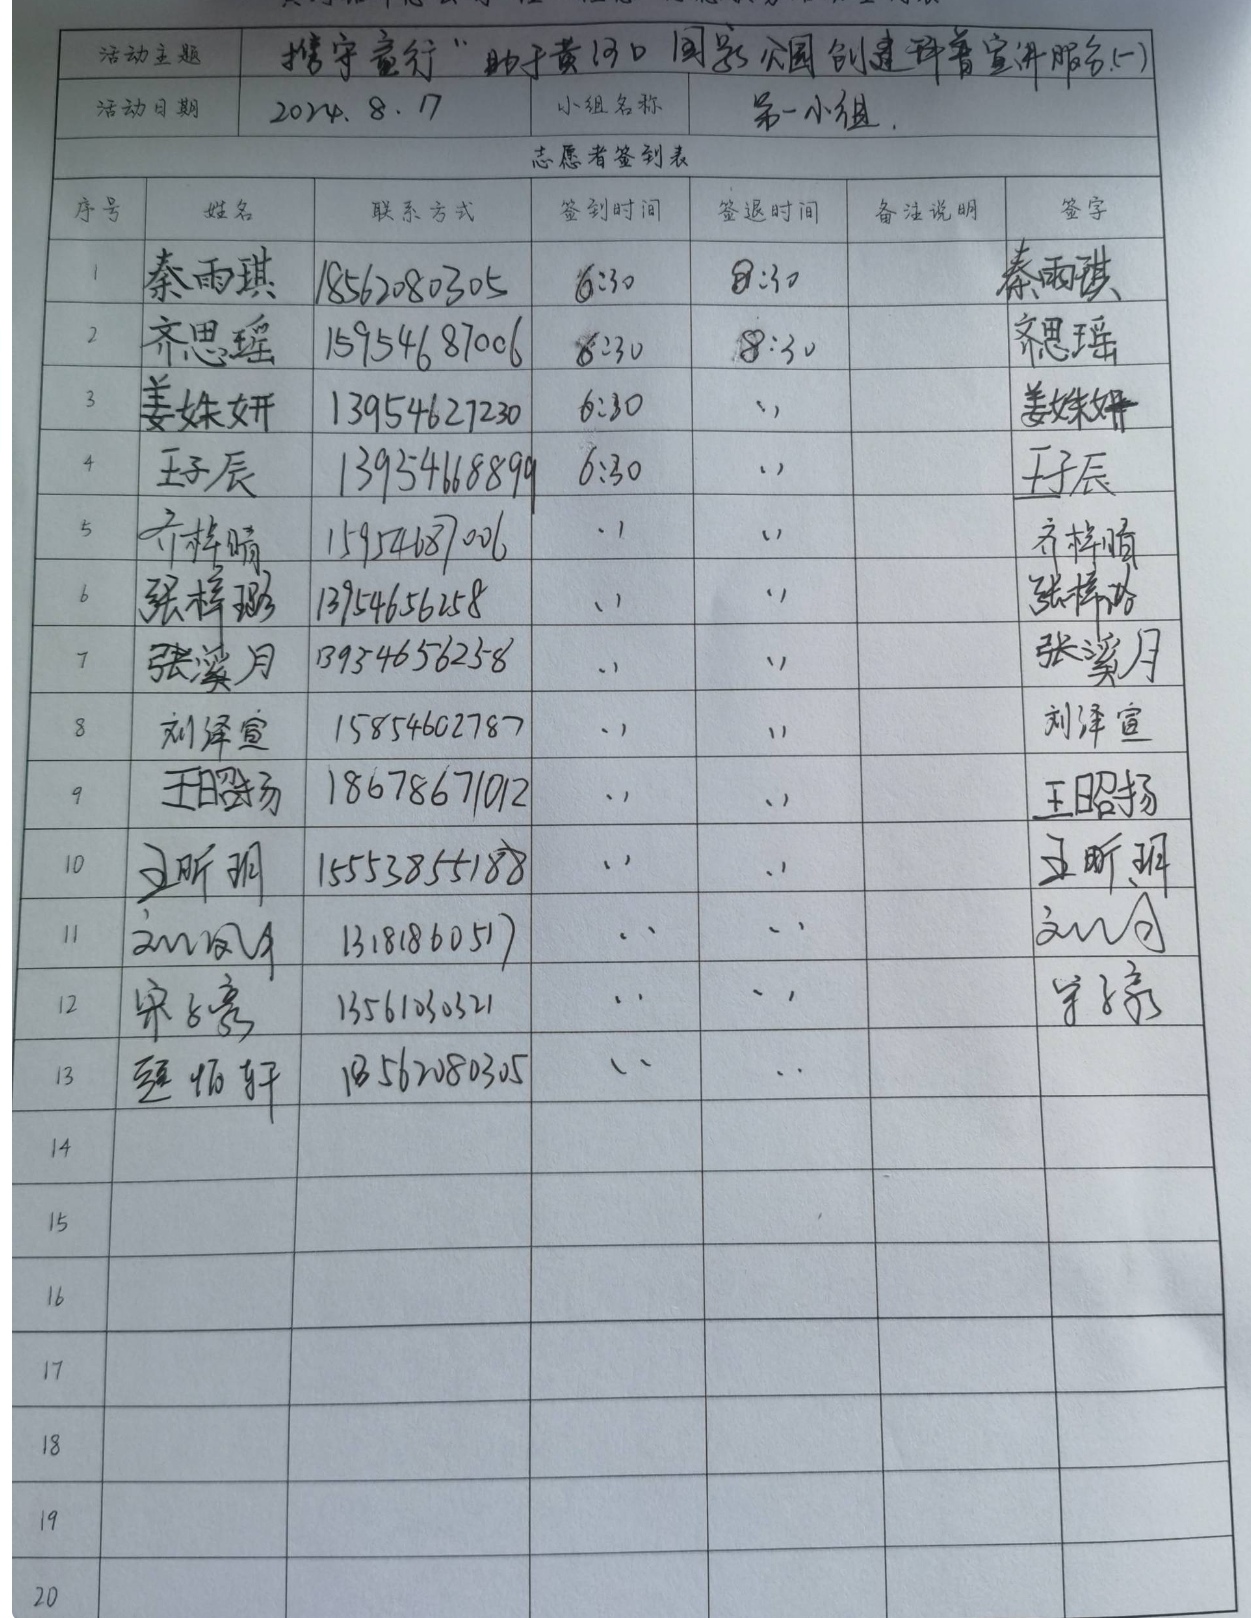 活动主题 携守童行" 助于黄河口国家公园创建科普宣讲服务(一)
活动日期 2024.8.17 小组名称 第一小组.
志愿者签到表
序号 姓名 联系方式 签到时间 签退时间 备注说明 签字
1 秦雨琪 18562080305 6:30 8:30 秦雨琪
2 齐思瑶 15954687006 6:30 8:30 齐思瑶
3 姜姝妍 13954627230 6:30 、、 姜姝妍
4 王子辰 13954668899 6:30 、、 王子辰
5 齐梓晴 15954687006 、、 、、 齐梓晴
6 张梓璐 13954656258 、、 、、 张梓璐
7 张溪月 13954656258 、、 、、 张溪月
8 刘泽宣 15854602787 、、 、、 刘泽宣
9 王昭扬 18678671012 、、 、、 王昭扬
10 王昕玥 15553855188 、、 、、 王昕玥
11 13181860517 、、 、、
12 宋子豪 13561030321 、、 、、 宋子豪
13 怡轩 18562080305 、、 、、
14
15
16
17
18
19
20